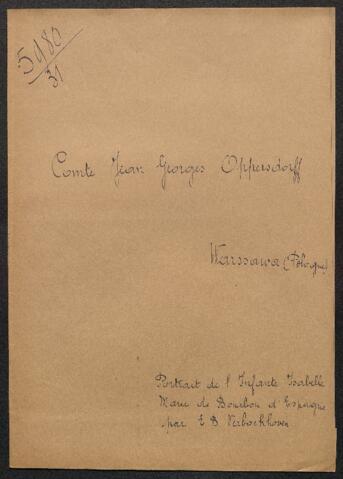 5980/31
Comte Jean Georges Oppersdorff
Warssawa (Pologne)
Portrait de l'Infante Isabelle
Marie de Bourbon d'Espagne
par E B Verboekhoven